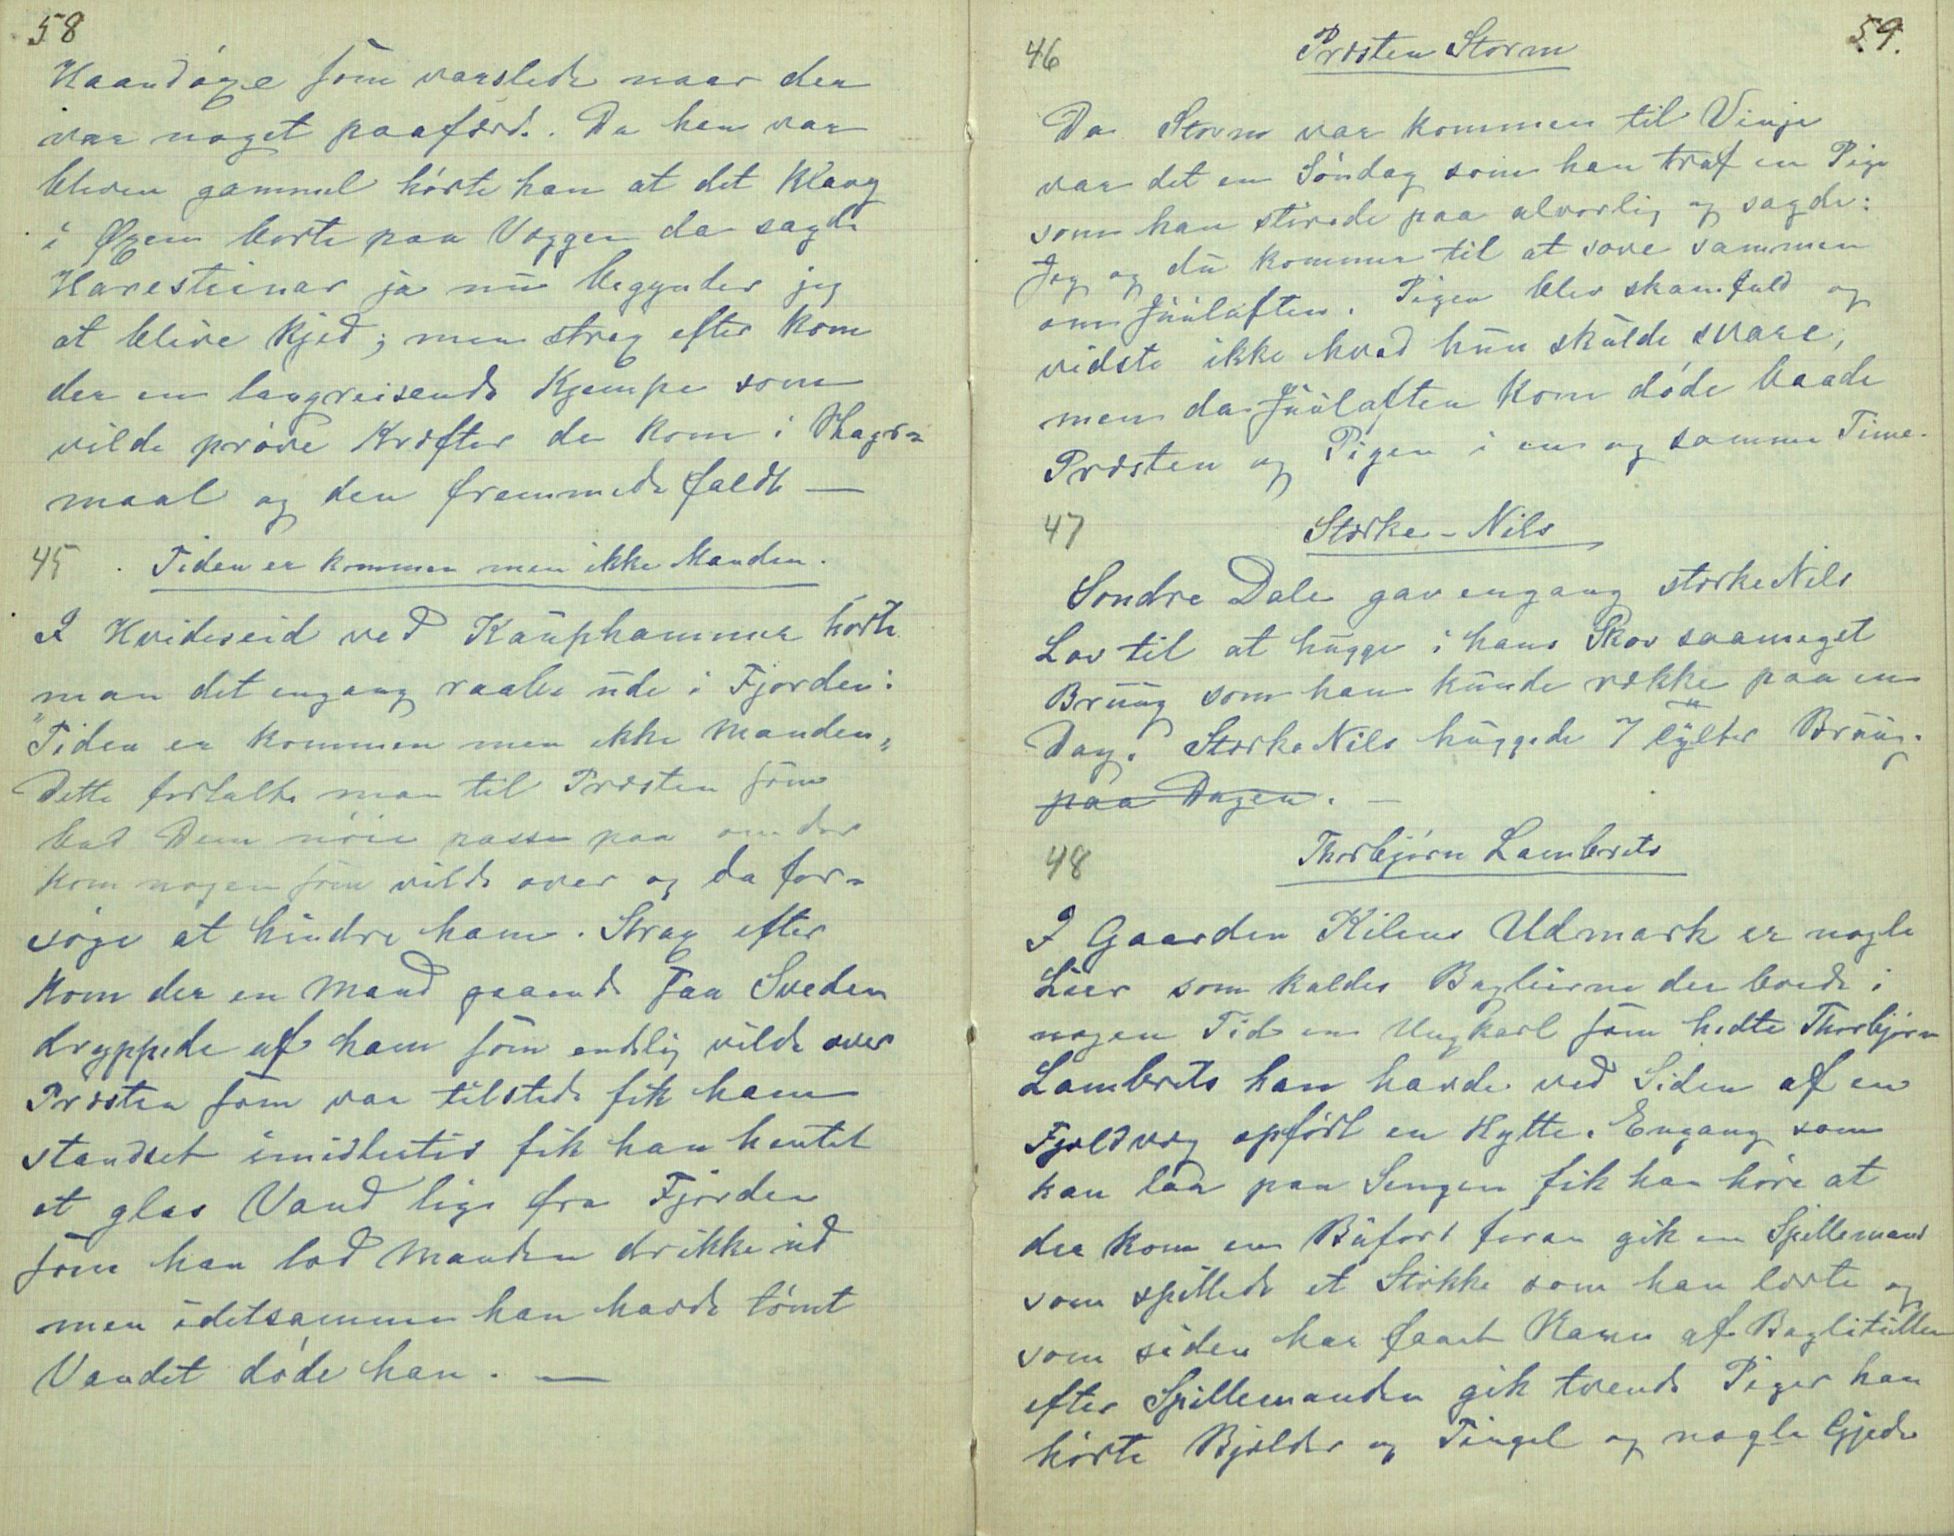 58
Haandøxe som varslede naar der
var noget paafærd. Da han var
bleven gammel hørte han at det klang
i Øxen borte paa Væggen da sagde
Haresteinar ja nu begynder jeg
at blive kjed; men strax efter kom
der en langreisende Kjempe som
vilde prøve Kræfter de kom i Slags-
maal og den fremmede faldt —
45. Tiden er kommen men ikke Manden.
I Hvideseid ved Kauphammer hørte
man det engang raabe ude i Fjorden:
"Tiden er kommen men ikke Manden"
Dette fortalte man til Præsten som
bad Dem nøie passe paa om der
kom nogen som vilde over og da for-
søge at hindre ham. Strax efter
kom der en Mand gaaende saa Sveden
dryppede af ham som endelig vilde over
Præsten som var tilstede fik ham
standset imidlertid fik han hentet
et glas Vand lige fra Fjorden
som han lod Manden drikke ud
men idetsamme han havde tømt
Vandet døde han. —
59.
46 Præsten Storm
Da Storm var kommen til Vinje
var det en Søndag som han traf en Pige
som han stirede paa alvorlig og sagde:
Jeg og du kommer til at sove sammen
om Juulaften. Pigen blev skamfuld og
vidste ikke hvad hun skulde svare,
men da Juulaften kom døde baade
Præsten og Pigen i en og samme Time.
47 Stærke-Nils
Sondre Dale gav engang stærke Nils
Lov til at hugge i hans Skov saameget
Bruug som han kunde række paa en
Dag. Stærke Nils huggede 7 tylter Bruug.
paa Dagen. —
48 Thorbjørn Lambrets
I Gaarden Kilens Udmark er nogle
Lier som kaldes Baglierne der boede i
nogen Tid en Ungkarl som hedte Thorbjørn
Lambrets han havde ved Siden af en
Fjeldvæg opført en Hytte. Engang som
han laa paa Sengen fik han høre at
der kom en Buferd foran gik en Spillemand
som spillede et Stykke som han lærte og
som siden har faaet Navn af Baglitullen
efter Spillemanden gik tvende Piger han
hørte Bjelder og Tingel og nogle Gjeder